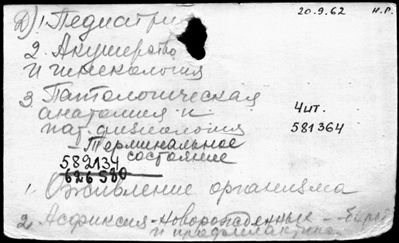 20.9.62 Н.Р.
Д) 1. Педиатрия
2. Акушерство
и гинекология
3. Патологическая
анатомия и
пат. физиология
Чит.
581364
- Терминальное
состояние
582134
626580
1. Оживление организма
2. Асфиксия - Новорожденные -
и профилактика